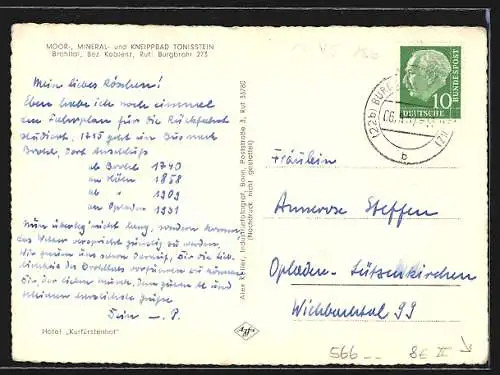 MOOR-, MINERAL- und KNEIPPBAD TÖNISSTEIN
Brohltal, Bez. Koblenz, Ruf: Burgbrohl 273
Mein liebes Röschen!
Eben habe ich noch einmal
den Fahrplan für die Rückfahrt
studiert, 1715 geht ein Bus nach
Brohl, dort Anschluß
ab Brohl 1740
an Köln 1858
ab " 1909
an Opladen 1931
Nun überleg nicht lang, sondern komm,
das Wetter verspricht günstig zu werden.
Wir freuen uns schon darauf, Dir die
des Brohltales vorführen zu können.
Dir, der lieben
meinen herzlichste Grüße
Dein - P.
Hotel „Kurfürstenhof"
Alex Köhler, Industriefotograf, Bonn, Poststraße 3, Ruf 35780
(Nachdruck nicht gestattet)
Agfa
10
DEUTSCHE
BUNDESPOST
(22b) BURG
b
Fräulein
Annerose Steffen
Opladen-Lützenkirchen
Wiebachtal 99
566
8€ II